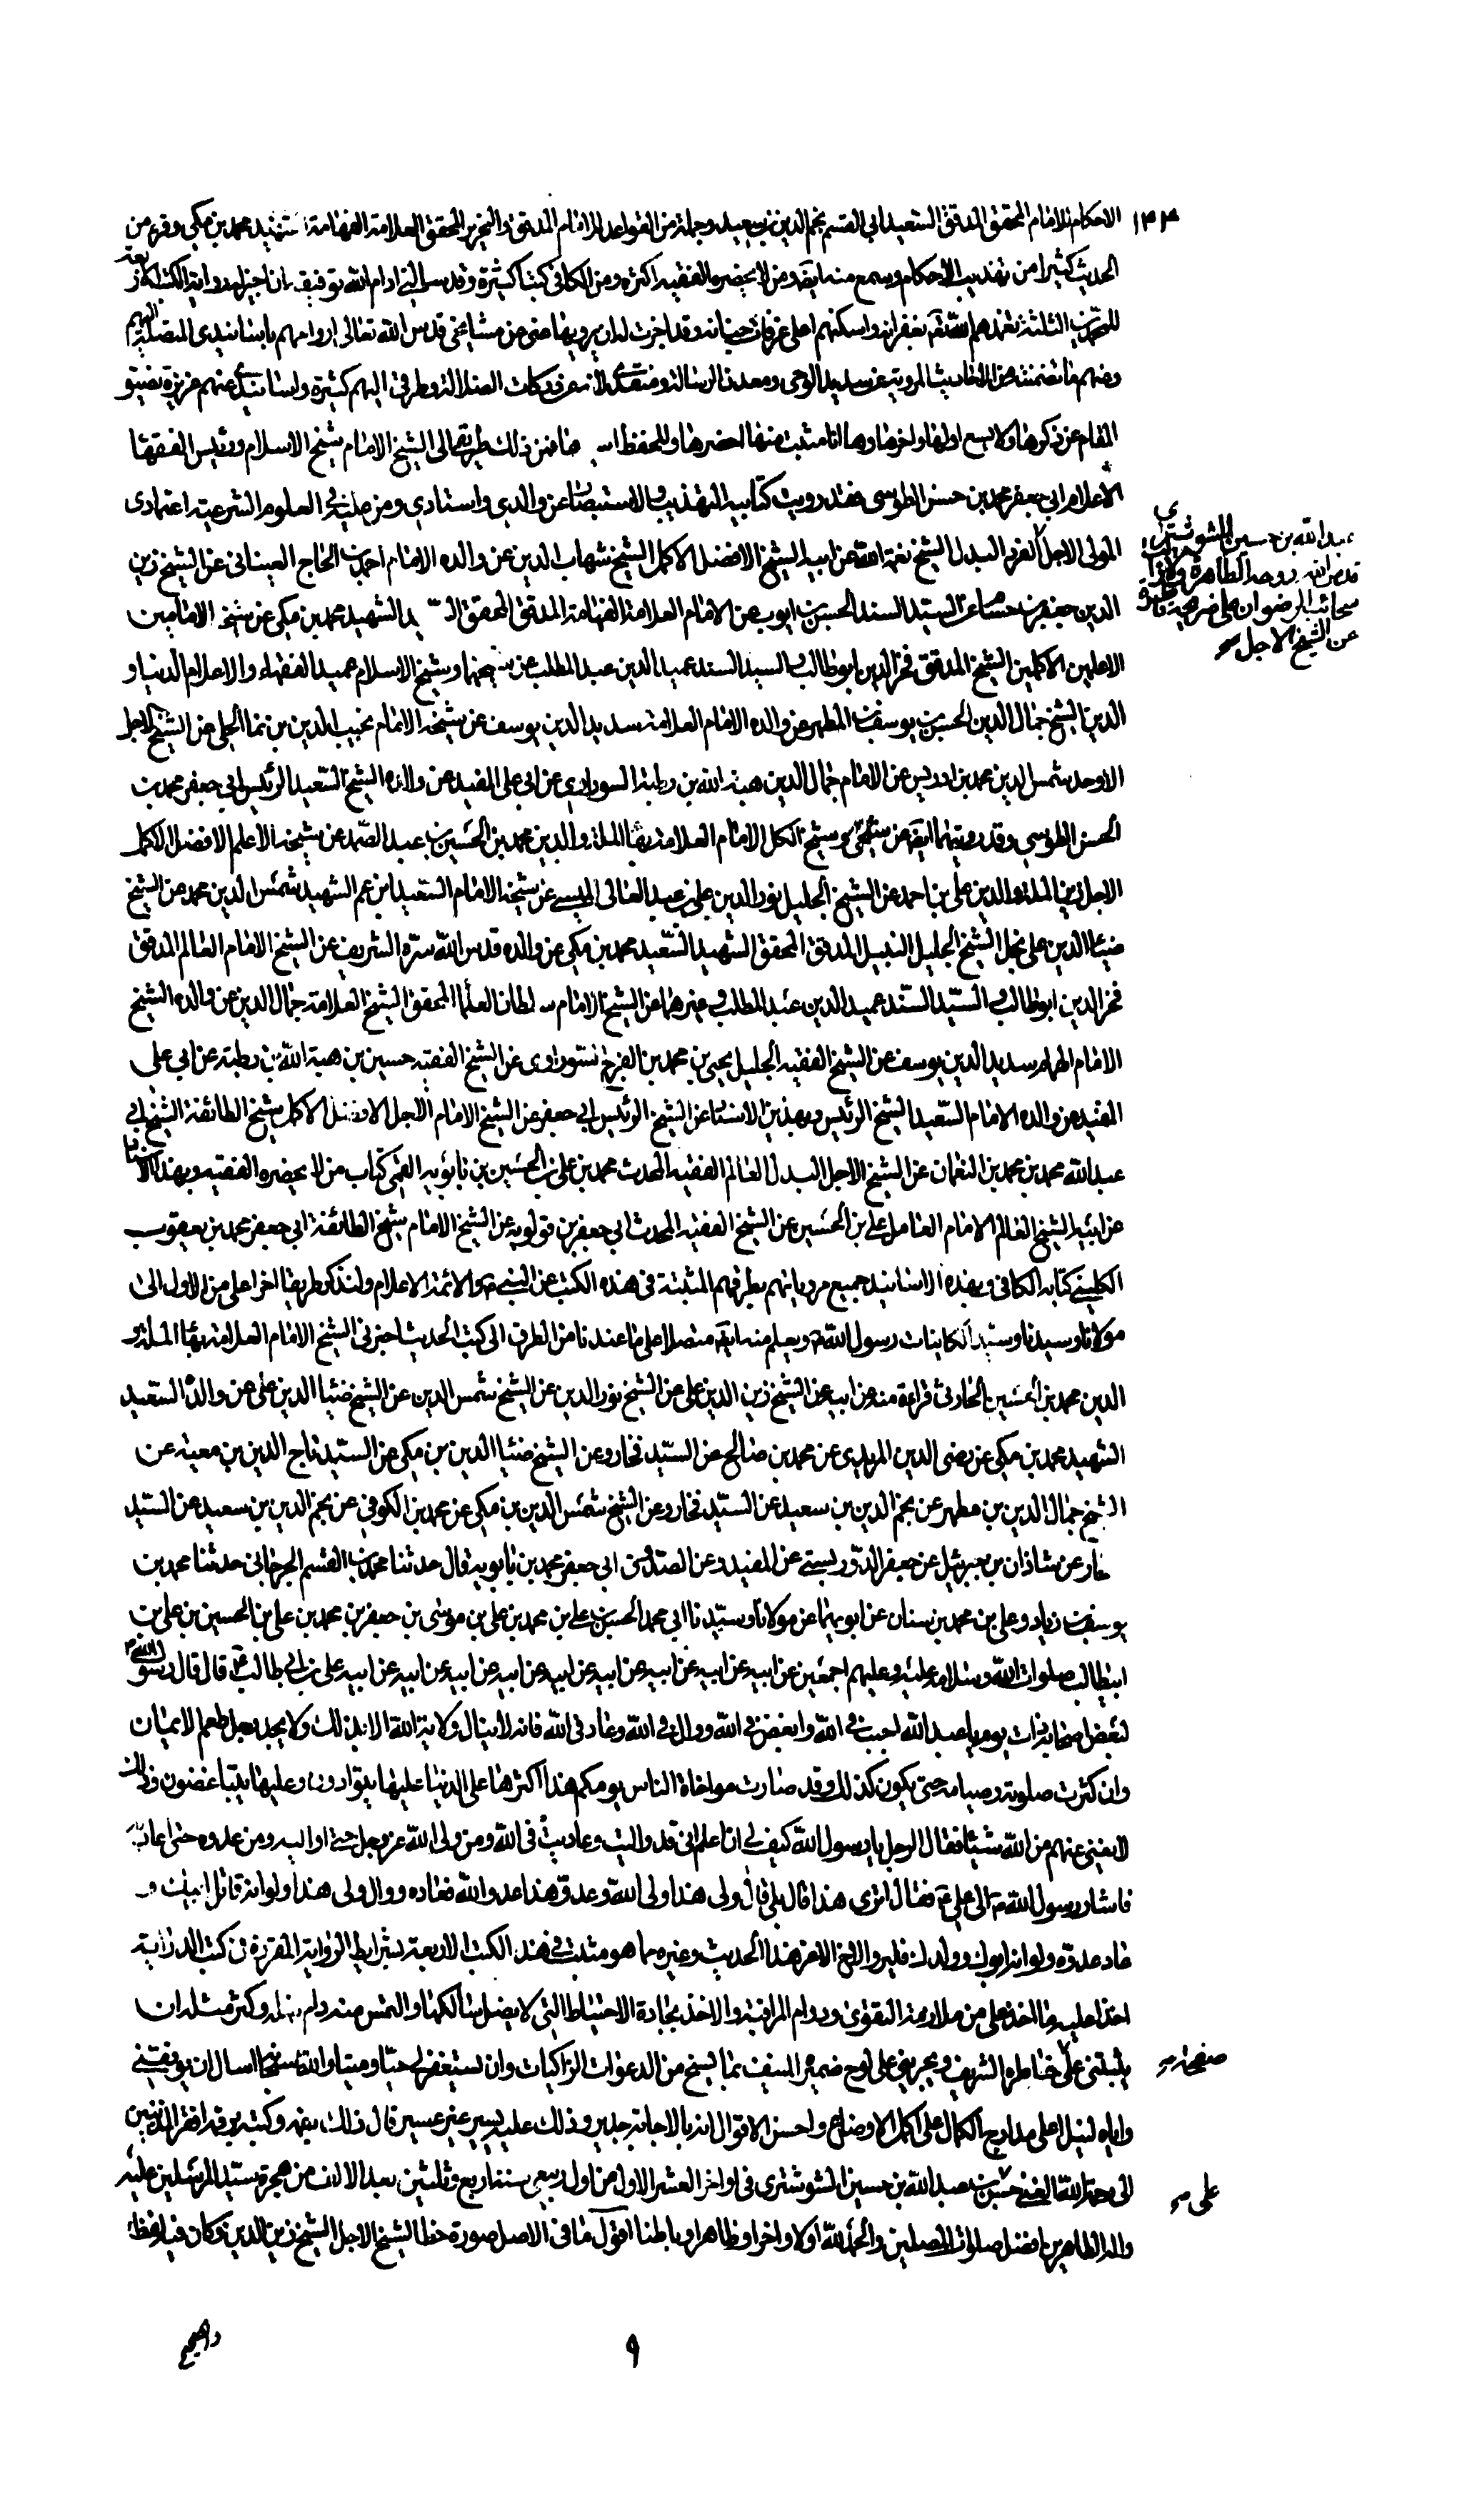 ١٣٤
الاحكام للامام المحقق المدقق السعيد ابي القسم نجم الدين بن سعيد وجملة من القواعد للامام المدقق والنحرير المحقق العلامة الفهامة الشهيد محمد بن مكي وقرء من
الحديث كثيرا من تهذيب الاحكام وسمع منه ايضا ومن لا يحضره الفقيه اكثره ومن الكافي كتبا كثيرة وقد سالني ادام الله توفيقه ان اجيز له رواية الكتب
للمحمدين الثلثة تغمدهم الله بغفرانه واسكنهم اعلى غرفات جنانه وقد اجزت له ان يرويها عني عن مشايخي قدس الله تعالى ارواحهم باسانيدي المتصلة اليهم
ومنهم ما تضمنته من الاحاديث المروية عن الوحي ومعدن الرسالة الضلالة وطرقي اليهم كثيرة واسانيدي عنهم غزيرة يضيق
المقام عن ذكرها ولا يسع اولها واخرها وها انا مثبت منها اخصرها وللحفظ فمن ذلك طريقي الى الشيخ الامام شيخ الاسلام ورئيس الفقهاء
الاعلام ابي جعفر محمد بن حسن الطوسي فقد رويت كتابيه التهذيب والاستبصار عن والدي واستادي ومن عليه في العلوم الشرعية اعتمادي
عبد الله بن حسين الشوشتري
قدس الله روحه الطاهرة
سحائب الرضوان على ضريحه
عن الشيخ الاجل
المولى الاجل الشيخ نعمة الله عن ابيه الشيخ الافضل الاكمل الشيخ شهاب الدين عن والده الامام احمد بن الحاج العيناثي عن الشيخ زين
الدين جعفر بن حسام عن السيد السند الحسن بن ايوب عن الامام العلامة الفهامة المدقق المحقق الشهيد محمد بن مكي عن شيخيه الامامين
الاعلمين الاكملين الشيخ المدقق فخر الدين ابو طالب والسيد السند عميد الدين عبد المطلب عن شيخهما وشيخ الاسلام عميد الفقهاء والاعلام
الدين الشيخ جمال الدين الحسن بن يوسف بن المطهر عن والده الامام العلامة سديد الدين يوسف عن شيخه الامام نجيب الدين بن نما الحلي عن الشيخ الاجل
الاوحد شمس الدين محمد بن ادريس عن الامام جمال الدين هبة الله بن رطبة السوراوي عن ابي علي المفيد عن والده الشيخ السعيد الرئيس ابي جعفر محمد بن
الحسن الطوسي وقد رويتهما ايضا عن شيخي وشيخ الكل الامام العلامة بهاء الملة والدين محمد بن الحسين بن عبد الصمد عن شيخه الاعلم الافضل الاكمل
الاجل زين الملة والدين علي بن احمد عن الشيخ الجليل نور الدين علي بن عبد العالي الميسي عن شيخه الامام السعيد ابن عم الشهيد شمس الدين محمد عن الشيخ
ضياء الدين علي نجل الشيخ الجليل النبيل المدقق المحقق الشهيد السعيد محمد بن مكي عن والده قدس الله سره الشريف عن الشيخ الامام العالم المدقق
فخر الدين ابو طالب والسيد السند عميد الدين عبد المطلب وغيرهما عن الشيخ الامام سلطان العلماء المحقق الشيخ العلامة جمال الدين عن والده الشيخ
الامام سديد الدين يوسف عن الشيخ الفقيه الجليل يحيى بن محمد بن الفرج السوراوي عن الشيخ الفقيه حسين بن هبة الله بن رطبة عن ابي علي
المفيد عن والده الامام السعيد الشيخ الرئيس وبهذين الاسنادين عن الشيخ الرئيس ابي جعفر عن الشيخ الامام الاجل الافضل الاكمل شيخ الطائفة الشيخ ابي
عبد الله محمد بن محمد بن النعمان عن الشيخ الاجل العالم الفقيه المحدث محمد بن علي بن الحسين بن بابويه القمي كتاب من لا يحضره الفقيه وبهذا الاسناد
عن ابيه الشيخ العالم الامام العامل علي بن الحسين عن الشيخ الفقيه المحدث ابي جعفر بن قولويه عن الشيخ الامام شيخ الطائفة ابي جعفر محمد بن يعقوب
الكليني كتابه الكافي وبهذه الاسانيد جميع مروياتهم بطرقهم المثبتة في هذه الكتب عن النبي والائمة الاعلام ولنذكر طريقا اخر اعلى من الاول الى
مولانا وسيدنا وسيد الكاينات رسول الله ويعلم منه ايضا متصلا اعلى ما عندنا من الطرق الى كتب الحديث اخبرني الشيخ الامام العلامة بهاء الملة و
الدين محمد بن الحسين الحارثي قراءة منه عن ابيه عن الشيخ زين الدين علي عن الشيخ نور الدين عن الشيخ شمس الدين عن الشيخ ضياء الدين علي عن والده السعيد
الشهيد محمد بن مكي عن رضي الدين المزيدي عن محمد بن صالح عن السيد فخار وعن الشيخ ضياء الدين بن مكي عن السيد تاج الدين بن معية عن
الشيخ جمال الدين بن مطهر عن نجم الدين بن سعيد عن السيد فخار وعن الشيخ شمس الدين بن مكي عن محمد بن الكوفي عن نجم الدين بن سعيد عن السيد
فخار عن شاذان بن جبرئيل عن جعفر الدوريستي عن المفيد وعن الصدوق ابي جعفر محمد بن بابويه قال حدثنا محمد بن القسم الجرجاني حدثنا محمد بن
يوسف بن زياد وعلي بن محمد بن سنان عن ابويهما عن مولانا وسيدنا ابي محمد الحسن بن علي بن محمد بن علي بن موسى بن جعفر بن محمد بن علي بن الحسين بن علي بن
ابيطالب صلوات الله وسلامه عليه وعليهم اجمعين عن ابيه عن ابيه عن ابيه عن ابيه عن ابيه عن ابيه عن ابيه عن ابيه عن ابيه علي بن ابي طالب قال قال رسول الله
لبعض اصحابه ذات يوم يا عبد الله احبب في الله وابغض في الله ووال في الله وعاد في الله فانه لا ينال ولاية الله الا بذلك ولا يجد رجل طعم الايمان
وان كثرت صلوته وصيامه حتى يكون كذلك وقد صارت مواخاة الناس يومكم هذا اكثرها على الدنيا عليها يتوادون وعليها يتباغضون وذلك
لا يغني عنهم من الله شيئا فقال الرجل يا رسول الله كيف لي ان اعلم اني قد واليت وعاديت في الله ومن ولي الله عز وجل حتى اواليه ومن عدوه حتى اعاديه
فاشار رسول الله الى علي فقال اترى هذا قال بلى قال ولي هذا ولي الله وعدو هذا عدو الله فعاده ووال ولي هذا ولو انه قاتل ابيك و
عاد عدوه ولو انه ابوك وولدك فليرو الاخ الاعز هذا الحديث وغيره مما هو مثبت في هذه الكتب الاربعة بشرايط الرواية المقررة في كتب الدراية
اخذا عليه ما اخذ علي من ملازمة التقوى ودوام المراقبة والاخذ بجادة الاحتياط التي لا يضل سالكها والتمس منه
يثبتني على خاطره الشريف ويجريني على لوح ضميره المنيف بما يسنح من الدعوات الزاكيات وان يستغفر لي حيا وميتا والله سبحانه اسال ان يوفقني
واياه لنيل اعلى مدارج الكمال على اكمل الاوضاع واحسن الاقوال انه بالاجابة جدير وذلك عليه يسير غير عسير قال ذلك بفمه وكتبه بيده افقر المذنبين
الى رحمة الله الغني حسن علي بن عبد الله بن حسين الشوشتري في اواخر العشر الاول من اول ربيعي سنة اربع وثلثين بعد الالف من هجرة سيد المرسلين عليه
علي
واله الطاهرين افضل صلوات المصلين والحمد لله اولا واخرا وظاهرا وباطنا اقول ما في الاصل صورة خط الشيخ الاجل الشيخ زين الدين وكان فيه
٩